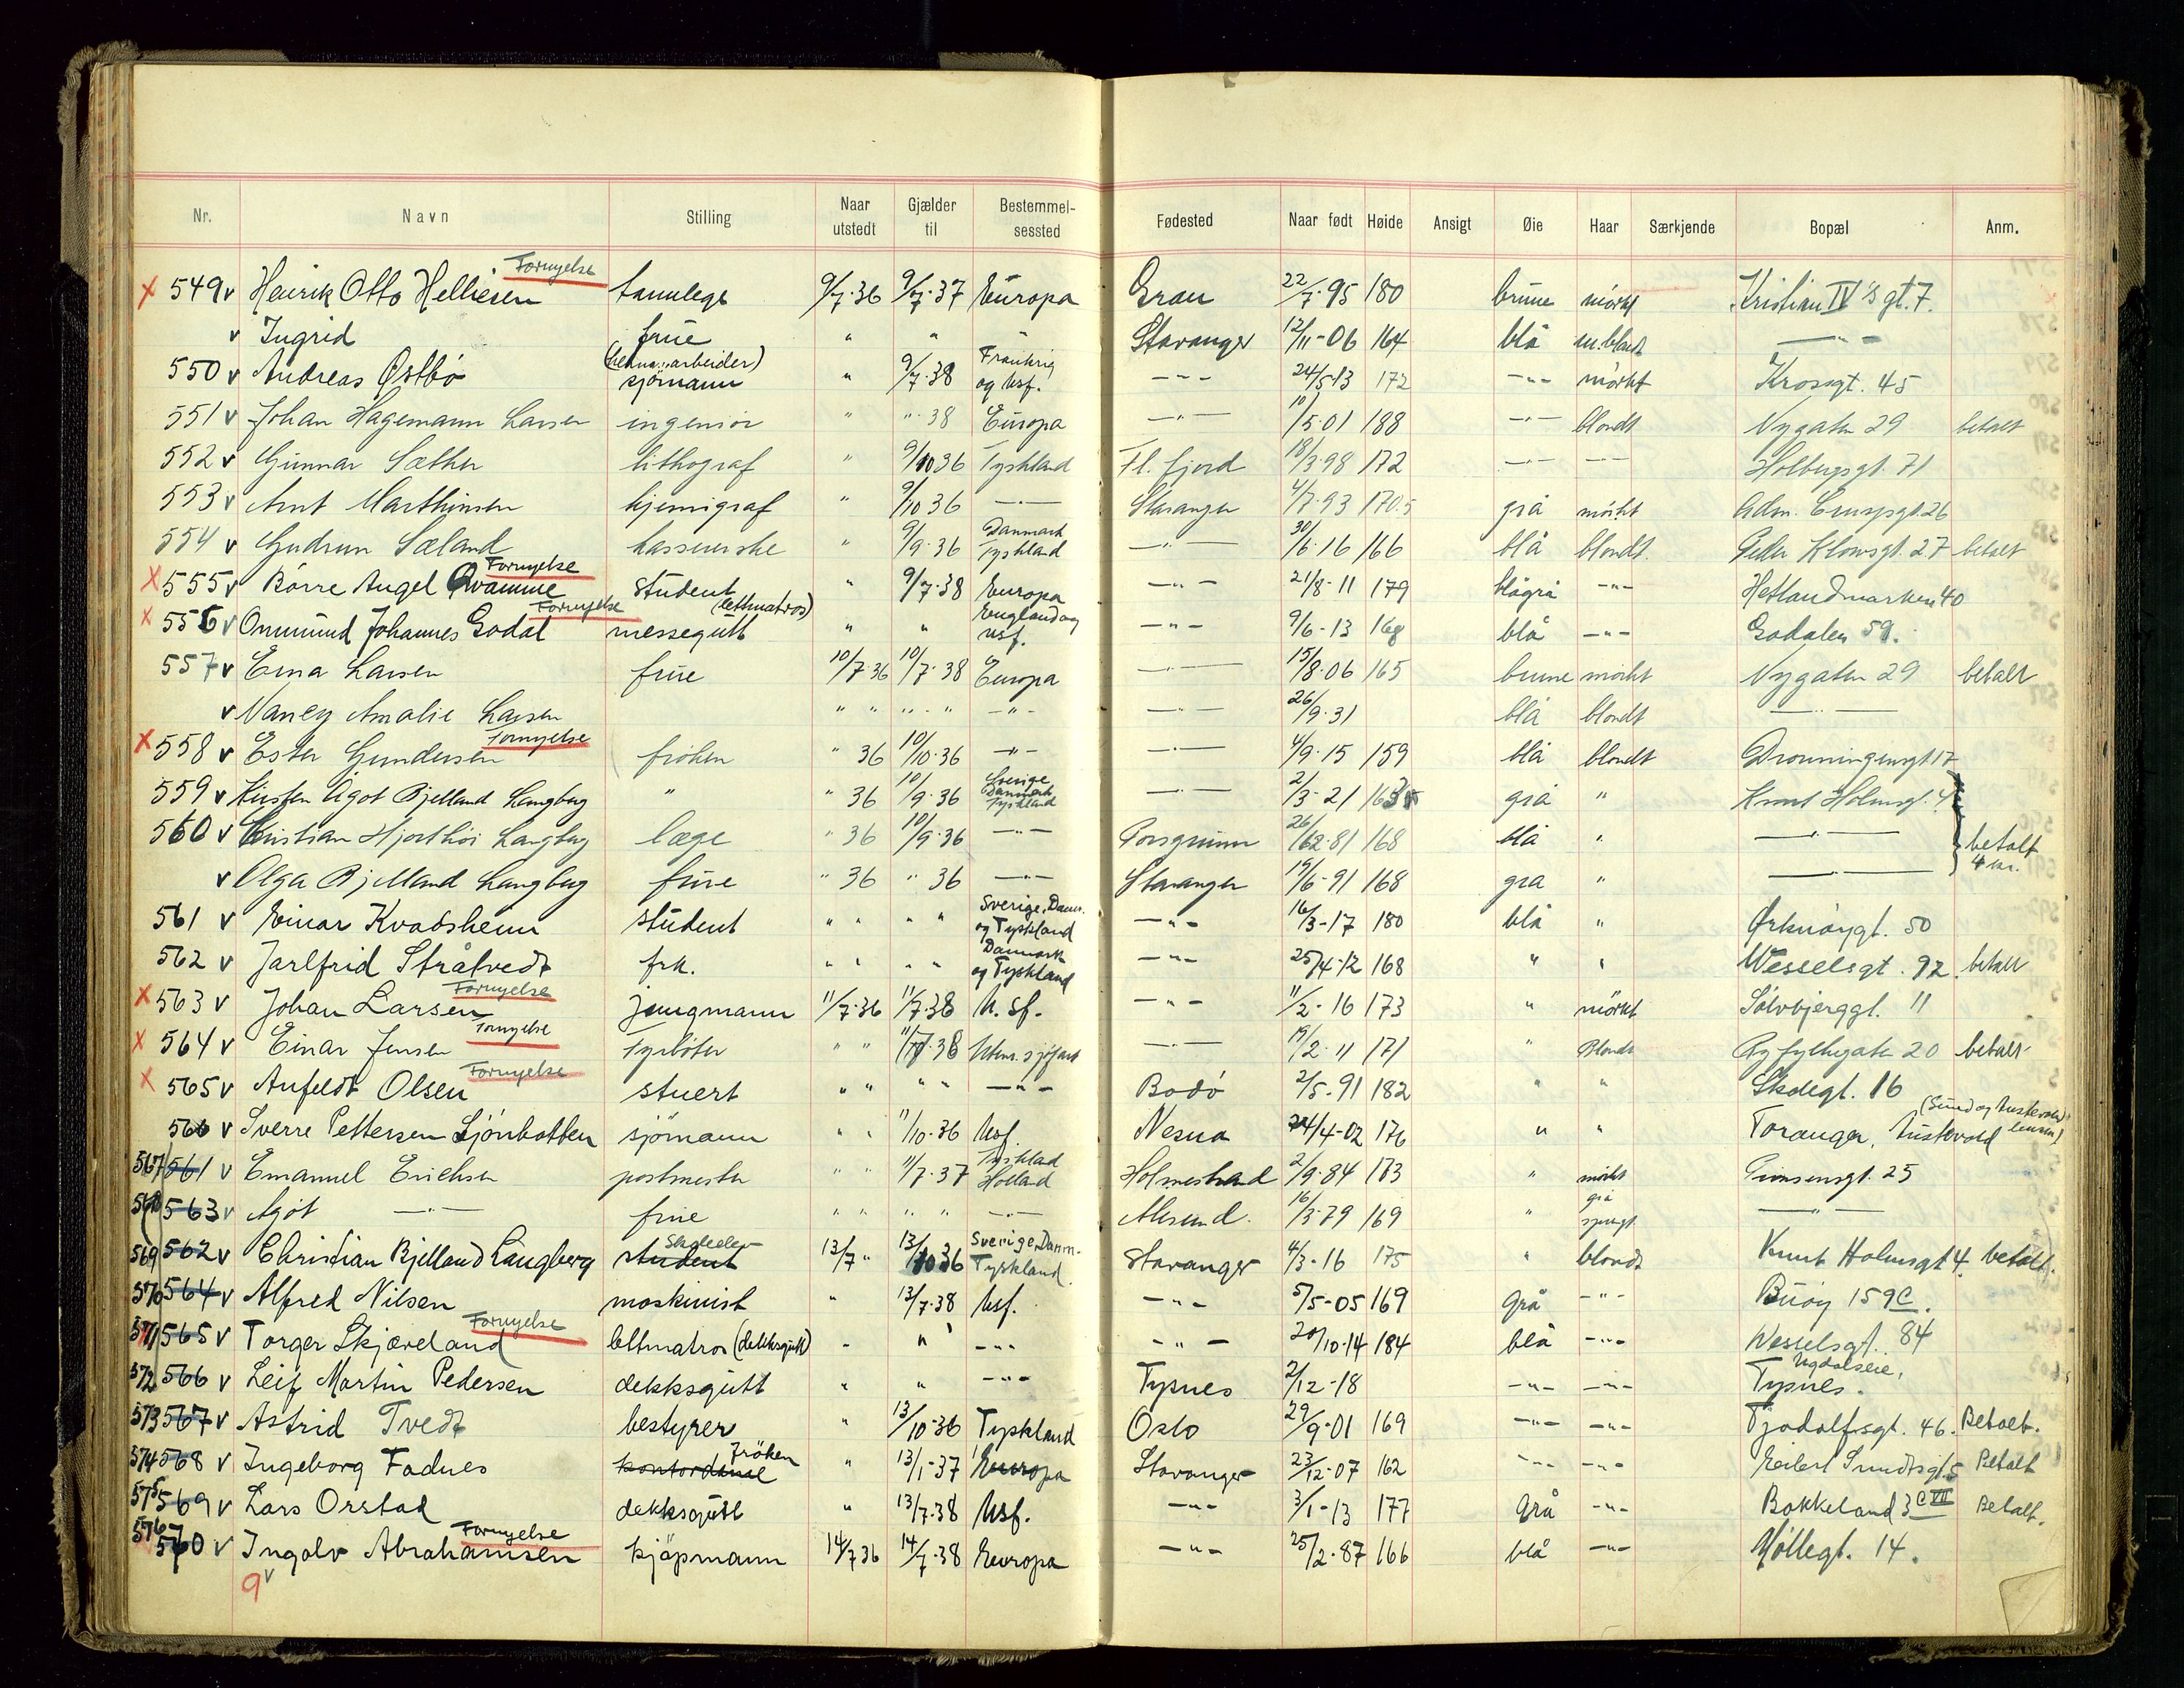 Nr. Navn Stilling Naar utstedt Gjælder til Bestemmelsessted Fødested Naar født Høide Ansigt Øie Haar Særkjende Bopæl Anm.
Fornyelse
x 549 v Henrik Otto Helliesen tannlege 9/7·36 9/7·37 Europa Gran 22/7·95 180 brune mörkt Kristian IV's gt. 7.
v Ingrid frue " " " Stavanger 12/11-06 164 blå m.blondt —"—
550 v Andreas Østbö sjömann " 9/7·38 Frankrig og Usf. —"— 24/5-13 172 —"— mörkt Krossgt. 45
551 v Johan Hagemann Larsen ingeniör " "·38 Europa —"— 10/5·01 188 —"— blondt Nygaten 29 betalt
552 v Gunnar Sæther lithograf " 9/10 36 Tyskland Fl. fjord 18/3·98 172 —"— —"— Holbergsgt. 71
553 v Arnt Marthinsen kjemigraf " 9/10 36 —"— Stavanger 4/7·93 170.5 grå mörkt Adm. Cruysgt. 26
554 v Gudrun Sæland kassererske " 9/9·36 Danmark Tyskland —"— 30/6·16 166 blå blondt Peder Klowsgt. 27 betalt
Fornyelse
x 555 v Börre Angel Qvamme student " 9/7·38 Europa —"— 21/8-11 179 blågrå —"— Hetlandmarken 40
Fornyelse (lettmatros)
x 556 v Ommund Johannes Godal messegutt " " England og usf. —"— 9/6-13 168 blå —"— Godalen 59.
557 v Erna Larsen frue 10/7·36 10/7·38 Europa —"— 15/8·06 165 brune mörkt Nygaten 29 betalt
v Nancy Amalie Larsen " " " - " —"— —"— 26/9·31 blå blondt —"—
Fornyelse
x 558 v Ester Gundersen fröken " 36 10/10·36 —"— —"— 4/9·15 159 blå blondt Dronningensgt 17
559 v Kirsten Ågot Bjelland Langberg " " 36 10/9·36 Sverige Danmark Tyskland —"— 2/3·21 grå " Knut Holmsgt. 4
560 v Kristian Hjorthöi Langberg læge " 36 10/9·36 —"— Porsgrunn 168 blå " —"— betalt
v Olga Bjelland Langberg frue " 36 " 36 —"— Stavanger 19/6-91 168 grå " —"— 4 kr.
561 v Einar Kvadsheim student " " " " Sverige, Danm. og Tyskland —"— 16/3-17 180 blå " Orknöygt. 50
562 v Jarlfrid Stråtvedt frk. " " " " Danmark og Tyskland —"— 25/4-12 168 " " Wesselsgt. 92. betalt
Fornyelse
x 563 v Johan Larsen jungmann 11/7·36 11/7·38 U. sf. —"— 11/2-16 173 " mörkt Sölvbjerggt. 11
Fornyelse
x 564 v Einar Jensen Fyrböter " " 11/7·38 Utenr. sjöfart —"— 19/2·11 171 " Blondt Ryfylkegaten 20 betalt
Fornyelse
x 565 v Anfeldt Olsen stuert " " " " —"— Bodö 2/5-91 182 " " Skolegt. 16
566 v Sverre Pettersen Sjönbotten sjömann " " 11/10·36 Usf. Nesna 24/4-02 176 " " Toranger, Austevold
567 561 v Emanuel Erichsen postmester " " 11/7·37 Tyskland Holland Holmestrand 2/9·84 173 " mörkt 25
568 563 v Agot —"— frue " " " " —"— Alesund. 16/3·79 169 " grå sprengt —"—
569 562 v Christian Bjelland Langberg student 13/7 " 13/10 36 Sverige, Danm. Tyskland. Stavanger 4/3-16 175 " blondt Knut Holmsgt 4. betalt.
570 564 v Alfred Nilsen maskinist " 13/7·38 Usf. —"— 5/5-05 169 grå —"— Buöy 159 C.
Fornyelse
571 565 v Torger Skjæveland lettmatros (dekksgutt) " " —"— —"— 20/10·14 184 blå —"— Wesselsgt. 84
572 566 v Leif Martin Pedersen dekksgutt " " —"— Tysnes 2/12-18 —"— —"— Tysnes.
573 567 v Astrid Tvedt bestyrer " 13/10-36 Tyskland Oslo 29/9-01 169 —"— —"— Tjodolfsgt. 46. Betalt.
fröken
574 568 v Ingeborg Fadnes kontordame " 13/1-37 Europa Stavanger 23/12-07 162 —"— —"— Eilert Sundtsgt 5 Betalt
575 569 v Lars Orstad dekksgutt " 13/7·38 Usf. —"— 3/1-13 177 grå —"— Bakkeland 3 C VII Betalt.
Fornyelse
576 570 v Ingolv Abrahamsen kjöpmann 14/7 36 14/7·38 Europa —"— 25/2·87 166 blå —"— Möllegt. 14.
9 v